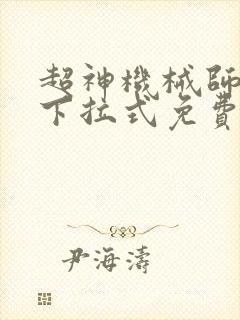 超神機械師
下拉式免費
尹海濤